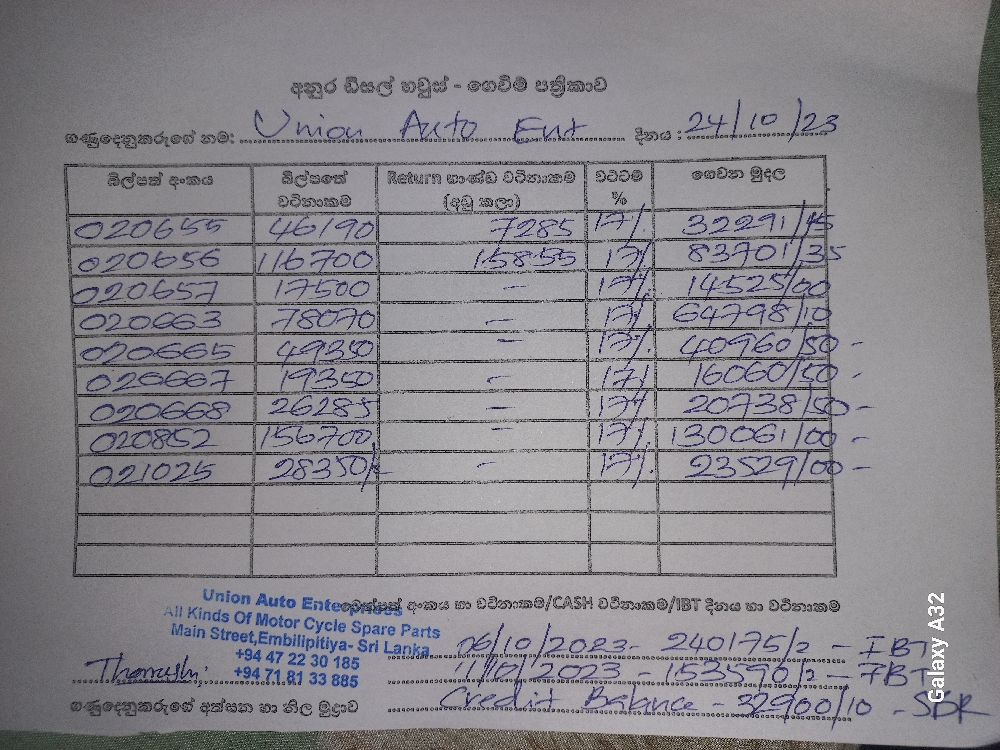 අනුර ඩීසල් හවුස් - ගෙවීම් පත්‍රිකාව
ගණුදෙනුකරුගේ නම: Union Auto Ent දිනය : 24/10/23
බිල්පත් අංකය බිල්පතේ වටිනාකම Return භාණ්ඩ වටිනාකම (අඩු කලා) වට්ටම % ගෙවන මුදල
020655 46190 7285 17% 32291/15
020656 116700 15855 17% 83701/35
020657 17500 - 17% 14525/00
020663 78070 - 17% 64798/10
020665 49350 - 17% 40960/50 -
020667 19350 - 17% 16060/50 -
020668 26285 - 17% 20738/50 -
020852 156700 - 17% 130061/00 -
021025 28350/- - 17% 23529/00 -
අංකය හා වටිනාකම/CASH වටිනාකම/IBT දිනය හා වටිනාකම
Union Auto Enterprises
All Kinds Of Motor Cycle Spare Parts
Main Street,Embilipitiya- Sri Lanka
+94 47 22 30 185
+94 71 81 33 885
06/10/2023- 240175/2 - IBT
2023 - 153590/2 - IBT
Credit Balance - 32900/10 - SDR
ගණුදෙනුකරුගේ අත්සන හා නිල මුද්‍රාව
Galaxy A32